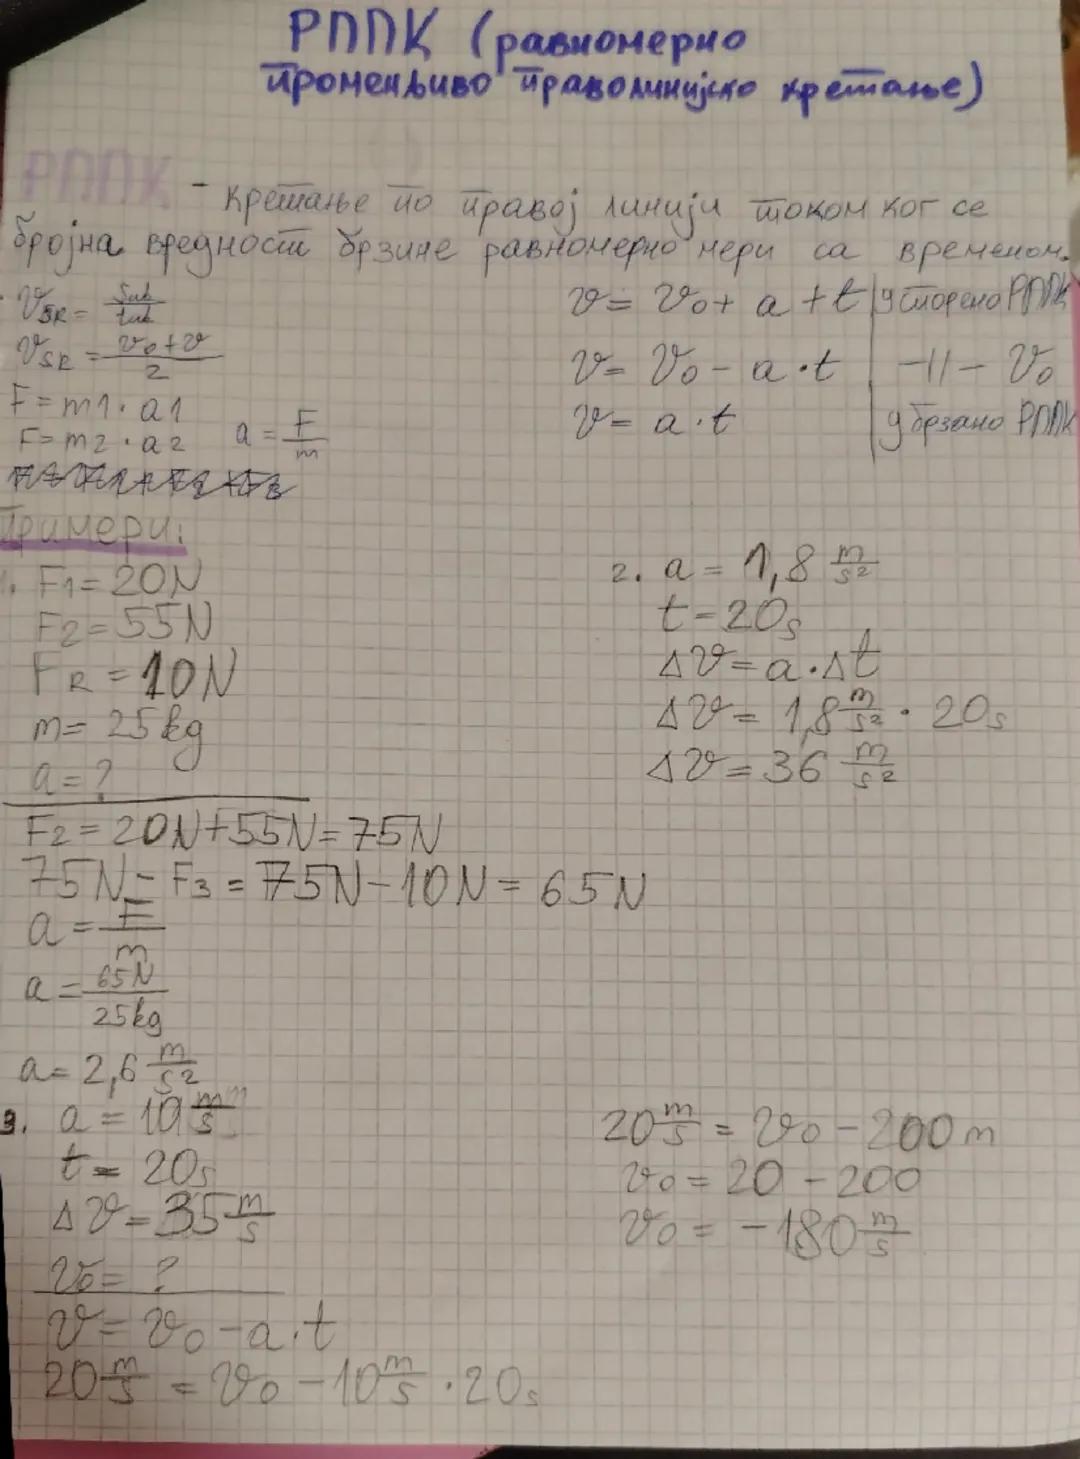 РППК (равномерно
променљиво праволинијско кретање)
РППК - кретање по правој линији током ког се
бројна вредност брзине равномерно мери са временом.
VSR = Suk/tuk
VSR = (v0+v)/2
F = m1 · a1
F = m2 · a2   a = F/m
v = v0 + a + t | успорено РППК
v = v0 - a · t | -||- v0
v = a · t | убрзано РППК
Примери:
1. F1 = 20N
F2 = 55N
FR = 10N
m = 25kg
a = ?
F2 = 20N+55N = 75N
75N - F3 = 75N - 10N = 65N
a = F/m
a = 65N/25kg
a = 2,6 m/s²
2. a = 1,8 m/s²
t = 20s
Δv = a · Δt
Δv = 1,8 m/s² · 20s
Δv = 36 m/s²
3. a = 10 m/s
t = 20s
Δv = 35 m/s
v0 = ?
v = v0 - a · t
20 m/s = v0 - 10 m/s · 20s
20 m/s = v0 - 200m
v0 = 20 - 200
v0 = -180 m/s